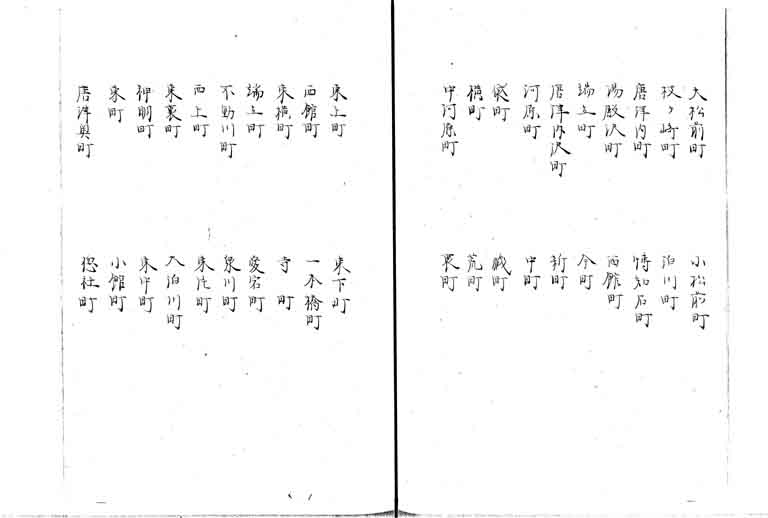 大松前町　小松前町
枝ヶ崎町　泊川町
唐津内町　博知石町
湯殿沢町　西舘町
端立町　今町
唐津内沢町　新町
河原町　中町
袋町　蔵町
横町　荒町
中河原町　裏町
東上町　東下町
西舘町　一本橋町
東横町　寺町
端立町　愛宕町
不動川町　泉川町
西上町
東裏町　大泊川町
神明町　東中町
東町　小舘町
唐津奥町　惣社町